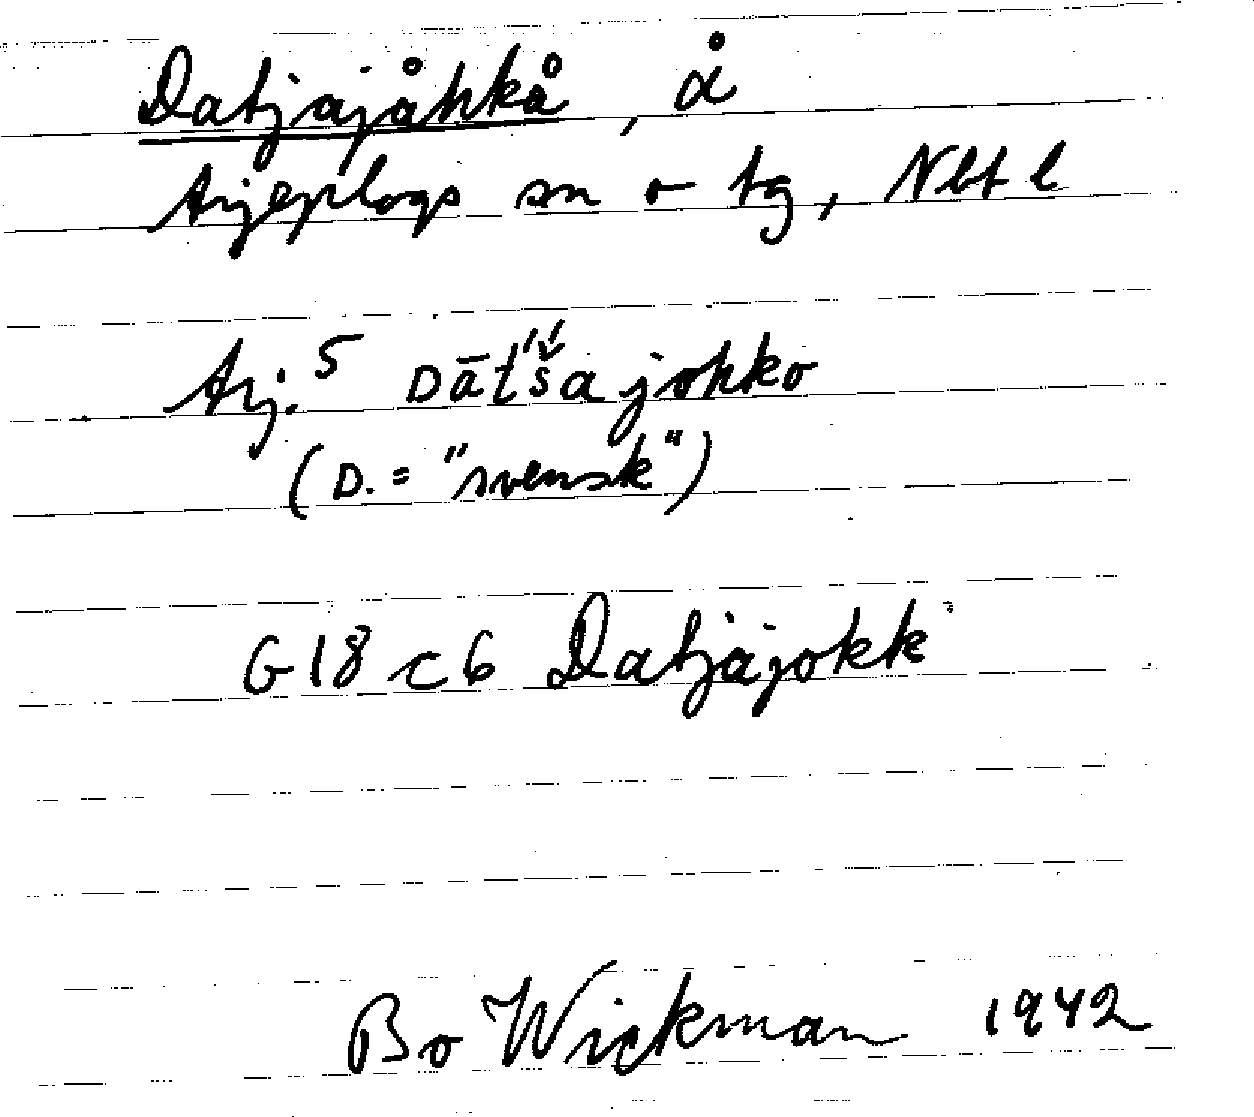 Datjajåhkå, å
Arjeplogs sn o tg, Nbt l
Arj. 5 Dāt́š́a johko
(D. = "svensk")
G18 c6 Datjajokk
Bo Wickman 1942